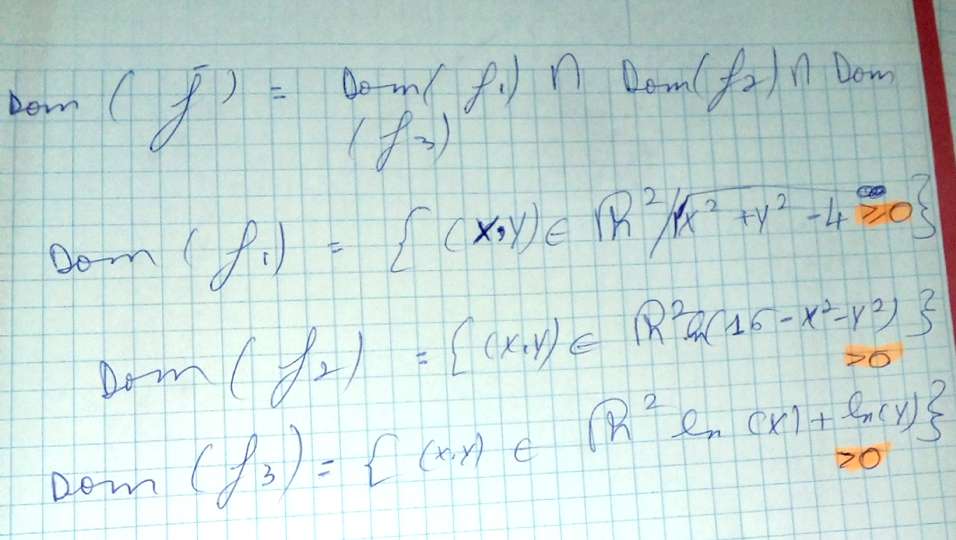 Dom ( f̄ ) = Dom( f₁) ∩ Dom( f₂) ∩ Dom
( f₃)
Dom ( f₁) = { (x,y) ∈ ℝ² / √x² + y² - 4 ≥0 }
Dom ( f₂) = { (x,y) ∈ ℝ² ln(16 - x² - y²) }
>0
Dom ( f₃) = { (x,y) ∈ ℝ² ln (x) + ln(y) }
>0